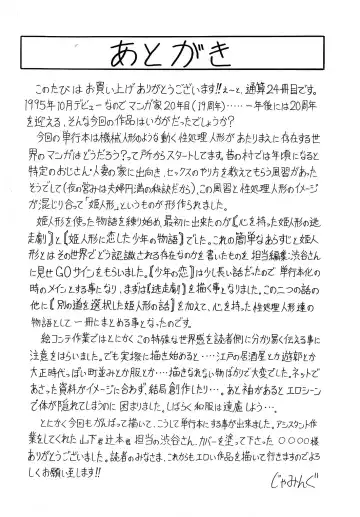 あとがき
このたびはお買い上げありがとうございます!! えーと、通算24冊目です。
1995年10月デビューなのでマンガ家20年目(19周年)‥‥‥一年後には20周年
を迎える、そんな今回の作品はいかがだったでしょうか?
今回の単行本は機械人形のような動く性処理人形があたりまえに存在する世
界のマンガはどうだろう?って所からスタートしてます。昔の村では年頃になると
特定のおじさん・人妻の家に出向き、セックスのやり方を教えてもらう風習があった
そうでして(夜の営みは夫婦円満の秘訣だから)、この風習と性処理人形のイメージ
が混じり合って「姫人形」というものが形作られました。
姫人形を使った物語を練り始め、最初に出来たのが【心を持った姫人形の逃
走劇】と【姫人形に恋した少年の物語】でした。これの簡単なあらすじと姫人
形とはその世界でどう認識される存在なのかを書いたものを、担当編集:渋谷さん
に見せGOサインをもらいました。【少年の恋】は少し長い話だったので単行本化の
時のメインとする事となり、まずは【逃走劇】を描く事となりました。この二つの話の
他に【別の道を選択した姫人形の話】を加えて、心を持った性処理人形達の
物語として一冊にまとめる事となったのです。
絵コンテ作業ではとにかくこの特殊な世界感を読者側に分かり易く伝える事に
注意をはらいました。でも実際に描き始めると‥‥江戸の居酒屋とか遊郭とか
大正時代っぽい町並みとか服とか‥‥描きなれない物ばかりで大変でした。ネットで
あさった資料がイメージに合わず、結局創作したり…。あと袖があるとエロシーン
で体が隠れてしまうのに困りました。しばらく和服は遠慮しよう‥‥。
とにかく今回もがんばって描いて、こうして単行本にする事が出来ました。アシスタント作
業をしてくれた山下@辻本@、担当の渋谷さん、カバーを塗って下さった〇〇〇〇様
ありがとうございました。読者のみなさま、これからもエロい作品を描いて行きますのでよろ
しくお願い致します!!
じゃみんぐ